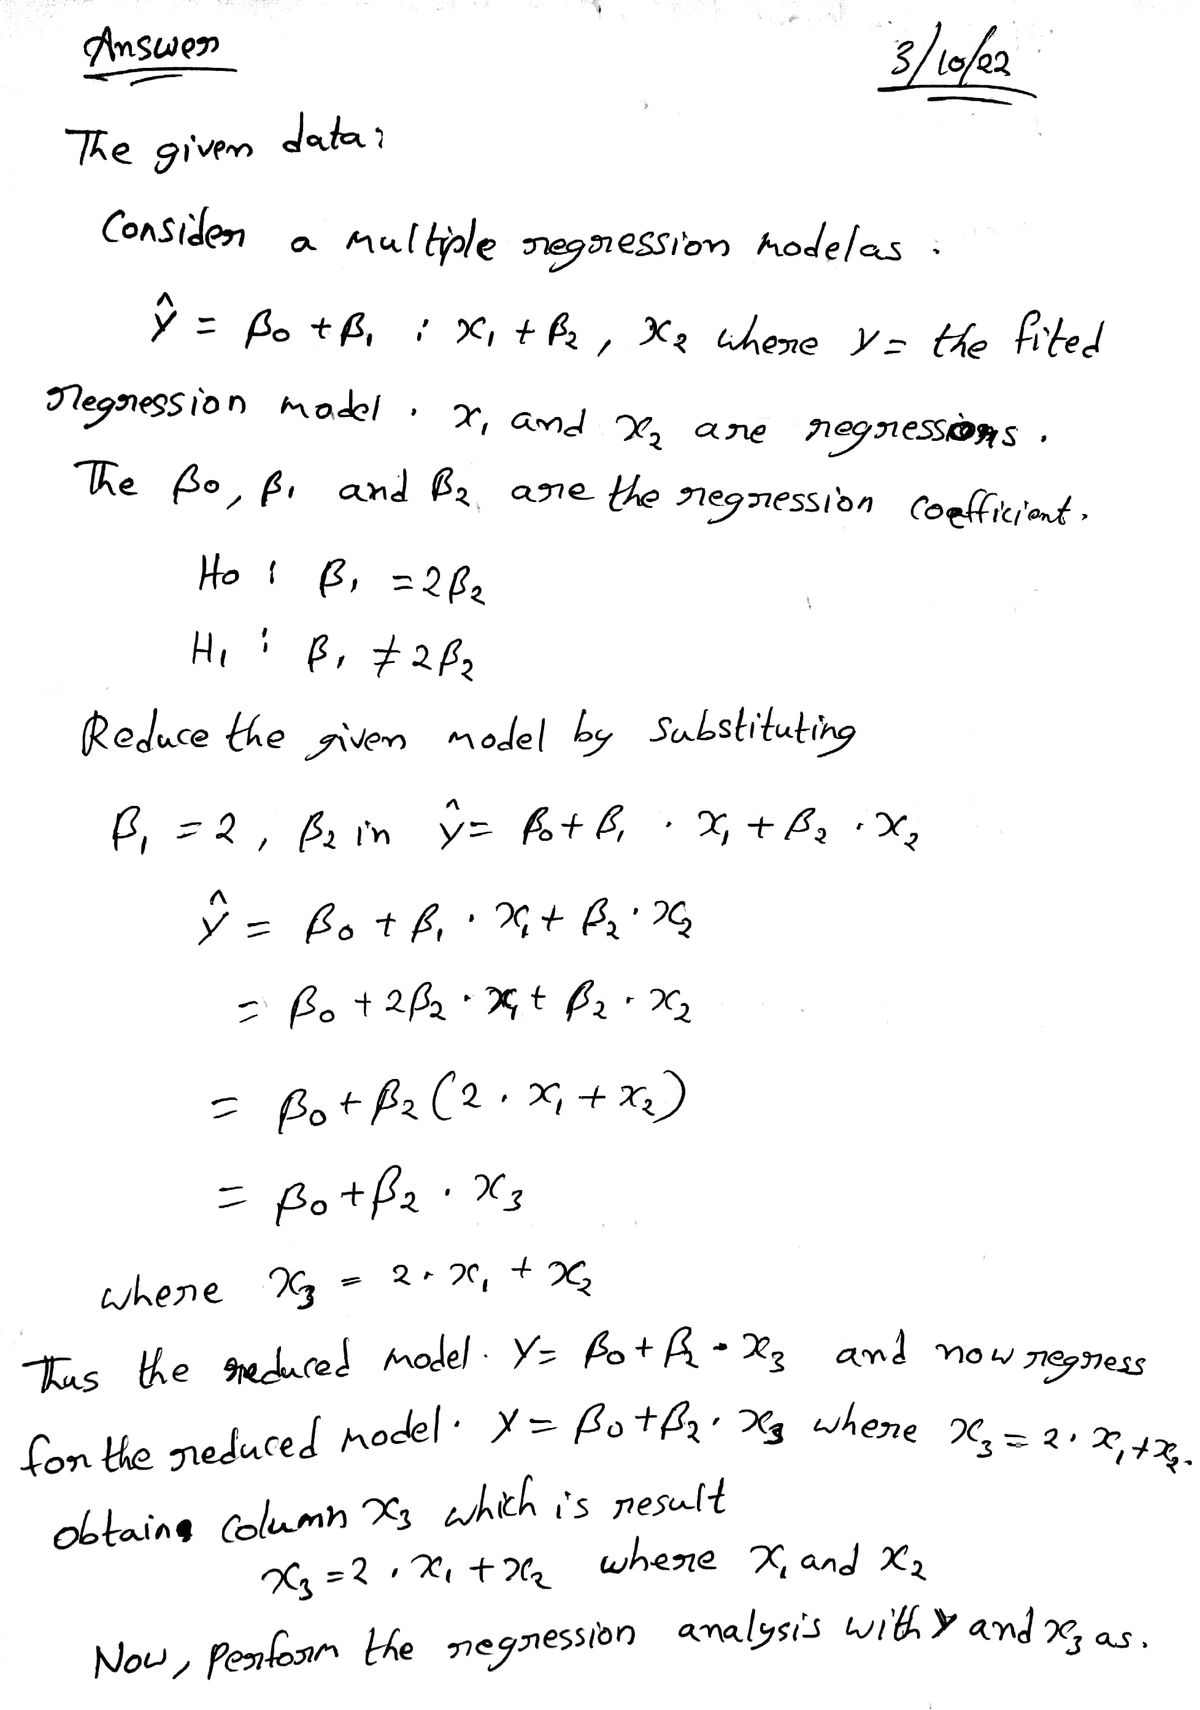 Answer
3/10/22
The given data:
Consider a multiple regression model as :
ŷ = β₀ + β₁ : x₁ + β₂ , x₂ where y = the fited
regression model . x₁ and x₂ are regressions .
The β₀, β₁ and β₂ are the regression coefficient.
H₀ : β₁ = 2β₂
H₁ : β₁ ≠ 2β₂
Reduce the given model by substituting
β₁ = 2 , β₂ in ŷ = β₀ + β₁ . x₁ + β₂ . x₂
ŷ = β₀ + β₁ . x₁ + β₂ . x₂
= β₀ + 2β₂ . x₁ + β₂ . x₂
= β₀ + β₂ (2 . x₁ + x₂)
= β₀ + β₂ . x₃
where x₃ = 2 . x₁ + x₂
Thus the reduced model . y = β₀ + β₂ . x₃ and now regress
for the reduced model . y = β₀ + β₂ . x₃ where x₃ = 2 . x₁ + x₂ .
obtain column x₃ which is result
x₃ = 2 . x₁ + x₂ where x₁ and x₂
Now, perform the regression analysis with y and x₃ as .